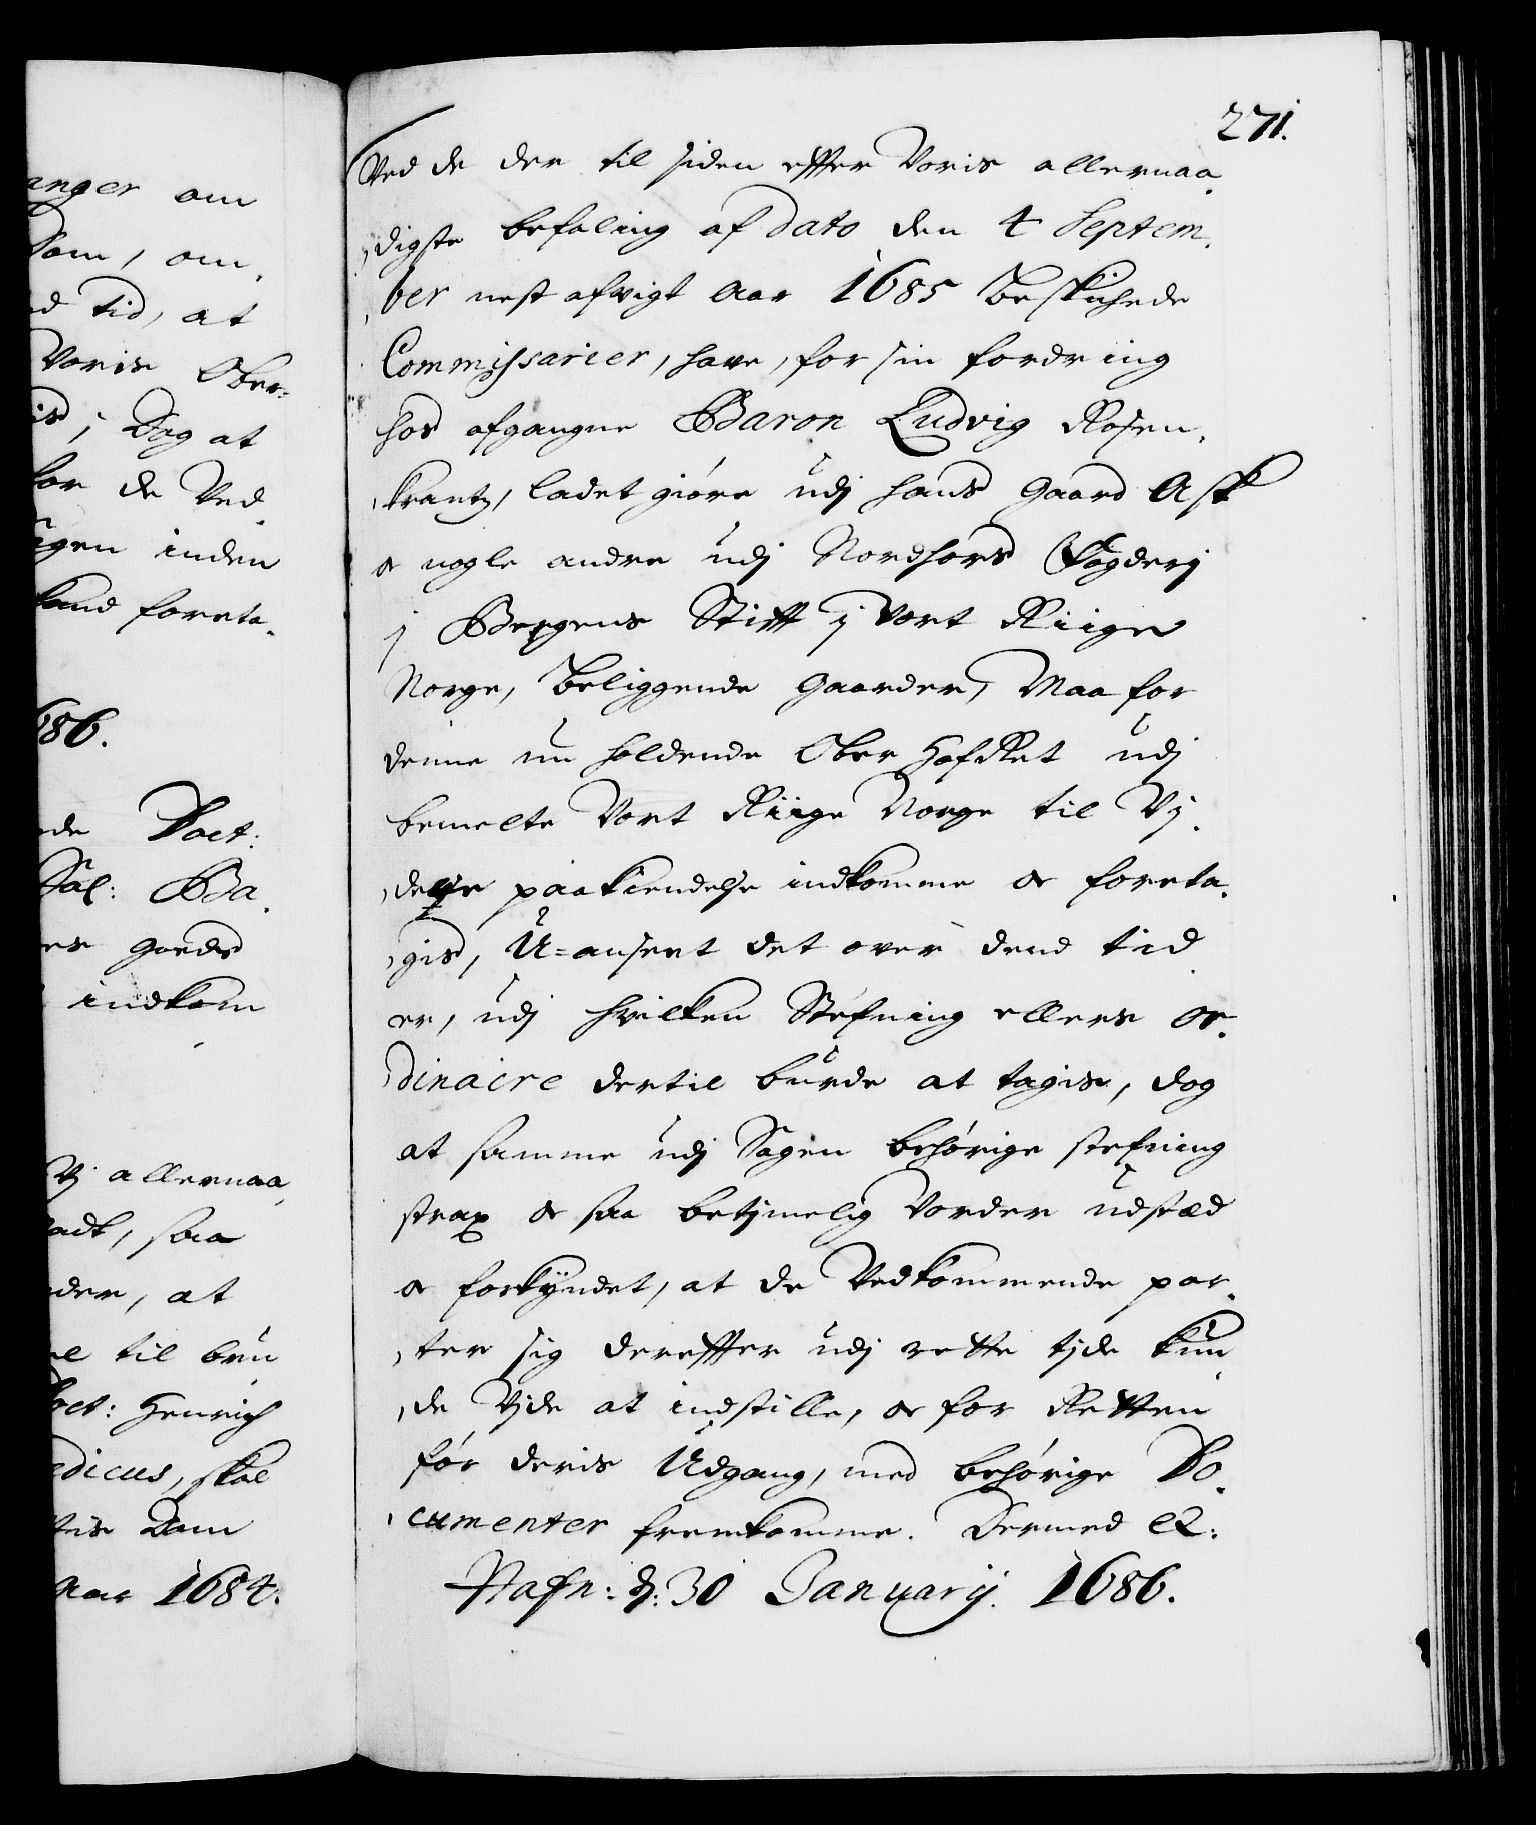 anger om
Dom, om,
d tid, at
Voris Ober=
is j Dog at
for de Ved
igen inden
land foreta,
686.
de Doct:
Sal: Ba,
es goeds
indkom
Vj allernaa,
adt, saa
der, at
el til bru
Doct: Henrich
edicus, skal
tis Dom
Aar 1684.
271.
Ved de der til siden effter Voris allernaa,
,digste befaling af Dato den 4 Septem,
,ber nest afvigt Aar 1685 Beskichede
Commissarier, have, for sin fordring
hos afgangne Baron Ludvig Rosen,
,krantz, ladet giöre udj hans gaard Ask
& nogle andre udj Nordhors Fogderj
j Bergens Stifft j Vort Riige
Norge, beliggende gaarder, Maa for
denne nu holdende Ober HofRet udj
bemelte Vort Riige Norge til Vj,
,dere paakiendelse indkomme & foreta,
,gis, U=anseet det over dend tid
er, udj hvilken Stefning ellers or,
,dinaire dertil burde at tagis, dog
at samme udj Sagen behörige stefning
strax & saa betjmelig Vorder udstæd
& forkÿndet, at de Vedkommende par,
,ter sig dereffter udj rette tjde kun,
,de Vide at indstille, & for Retten
för deris Udgang, med behörige Do,
,cumenter fremkomme. Dermed &:
Hafn: d: 30 Januarij. 1686.